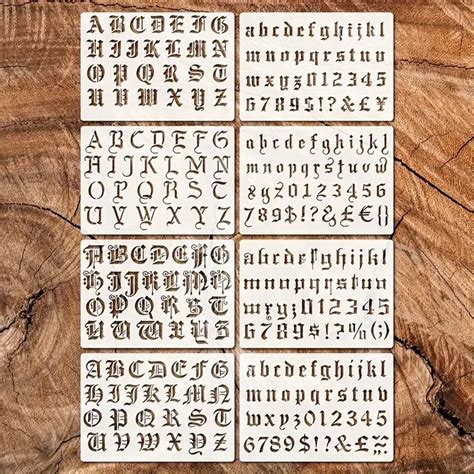 ABCDEFG
HIJKLMN
OPQRST
UVWXYZ
abcdefghijkl
mnopqrstuv
wxyz012345
6789$!?&£¥
ABCDEFG
HIJKLMN
OPQRST
UVWXYZ
abcdefghijkl
mnopqrstuvw
xyz0123456
789$!?&£€()
ABCDEFG
HIJKLMN
OPQRST
UVWXYZ
abcdefghijkl
mnopqrstuv
wxyz012345
6789$!?%(;)
ABCDEFG
HIJKLMN
OPQRST
UVWXYZ
abcdefghijkl
mnopqrstuv
wxyz012345
6789$!?&£€